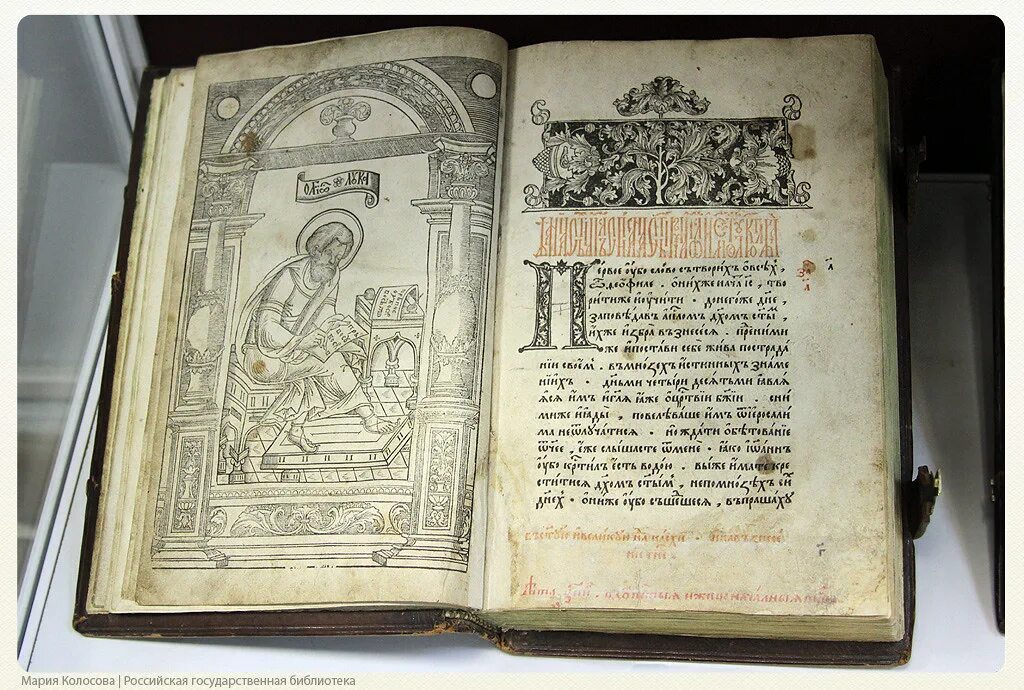 ѻ҆агі́ѡс лꙋка
Первое ᲂу҆́бо сло́во сътвори́хъ ѻ҆ всѣ́хъ ,
ѽ ѳео́филе . ѡ҆ ни́хже нача́тъ і҆с , тво
ри́ти же и҆ ᲂу҆чи́ти . до него́же дн҃е ,
заповѣ́дав а҆пⷭ҇лом дх҃ом ст҃ы́м
и҆́хже и҆збра̀ възнесе́сѧ . пред ни́ми
же и҆ поста́ви себѐ жи́ва по страда́
нїи свое́м . въ мно́зех и҆́стинных зна́ме
нїих . дн҃ьми четы́ри десѧтьми ꙗ҆влѧ́
ѧсѧ и҆́мъ и҆ гл҃ѧ ꙗ҆́же ѡ҆ црⷭ҇твїи бж҃їи . с ни́
ми же и҆ ꙗ҆ды̀ , повелѣва́ше и҆́мъ ѿ і҆ероⷭ҇али́
ма не ѿлꙋча́тисѧ . но жда́ти ѻ҆бѣтова́нїе
ѻ҆́тчее , є҆́же слы́шасте ѿ менє̀ . ꙗ҆́ко і҆ѡа́ннъ
ᲂу҆́бо крⷭ҇ти́лъ є҆́сть водо́ю . вы́ же и҆́мате кре
сти́тисѧ дх҃ом ст҃ы́м , не по мно́зѣхъ си́х
дн҃ех . ѻ҆ни́ же ᲂу҆́бо съше́дшесѧ , въпраша́хꙋ
Мария Колосова | Российская государственная библиотека